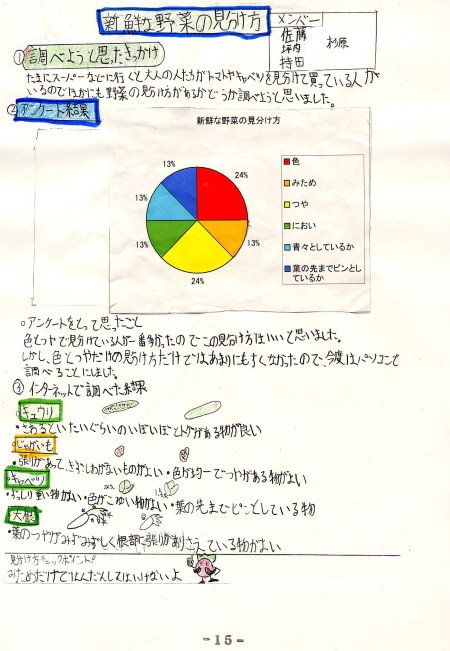 新鮮な野菜の見分け方
メンバー
佐藤 杉原
坪内
持田
①調べようと思ったきっかけ
たまにスーパーなどに行くと大人の人たちがトマトやキャベツを見分けて買っている人が
いるのでほかにも野菜の見分け方があるかどうか調べようと思いました。
②アンケート結果
新鮮な野菜の見分け方
24%
13%
24%
13%
13%
13%
色
みため
つや
におい
青々としているか
葉の先までピンとしているか
○アンケートをとって思ったこと
色とつやで見分けている人が一番多かったのでこの見分け方はいいと思いました。
しかし、色とつやだけの見分け方だけではあまりにもすくなかったので、今度はパソコンで
調べることにしました。
③インターネットで調べた結果
○キュウリ
・さわるといたいぐらいのいぼいぼとトゲがある物が良い
○じゃがいも
・張りがあって、きずしわがないものがよい・色が均一でつやがある物がよい
○キャベツ
ずっしり重い物がよい・色がこゆい物がよい・葉の先までピンとしている物
○大根
・葉のつやがみずみずしく根部に張りがありさえている物がよい
見分け方チェックポイント?
みためだけではんだんしてはいけないよ
-15-